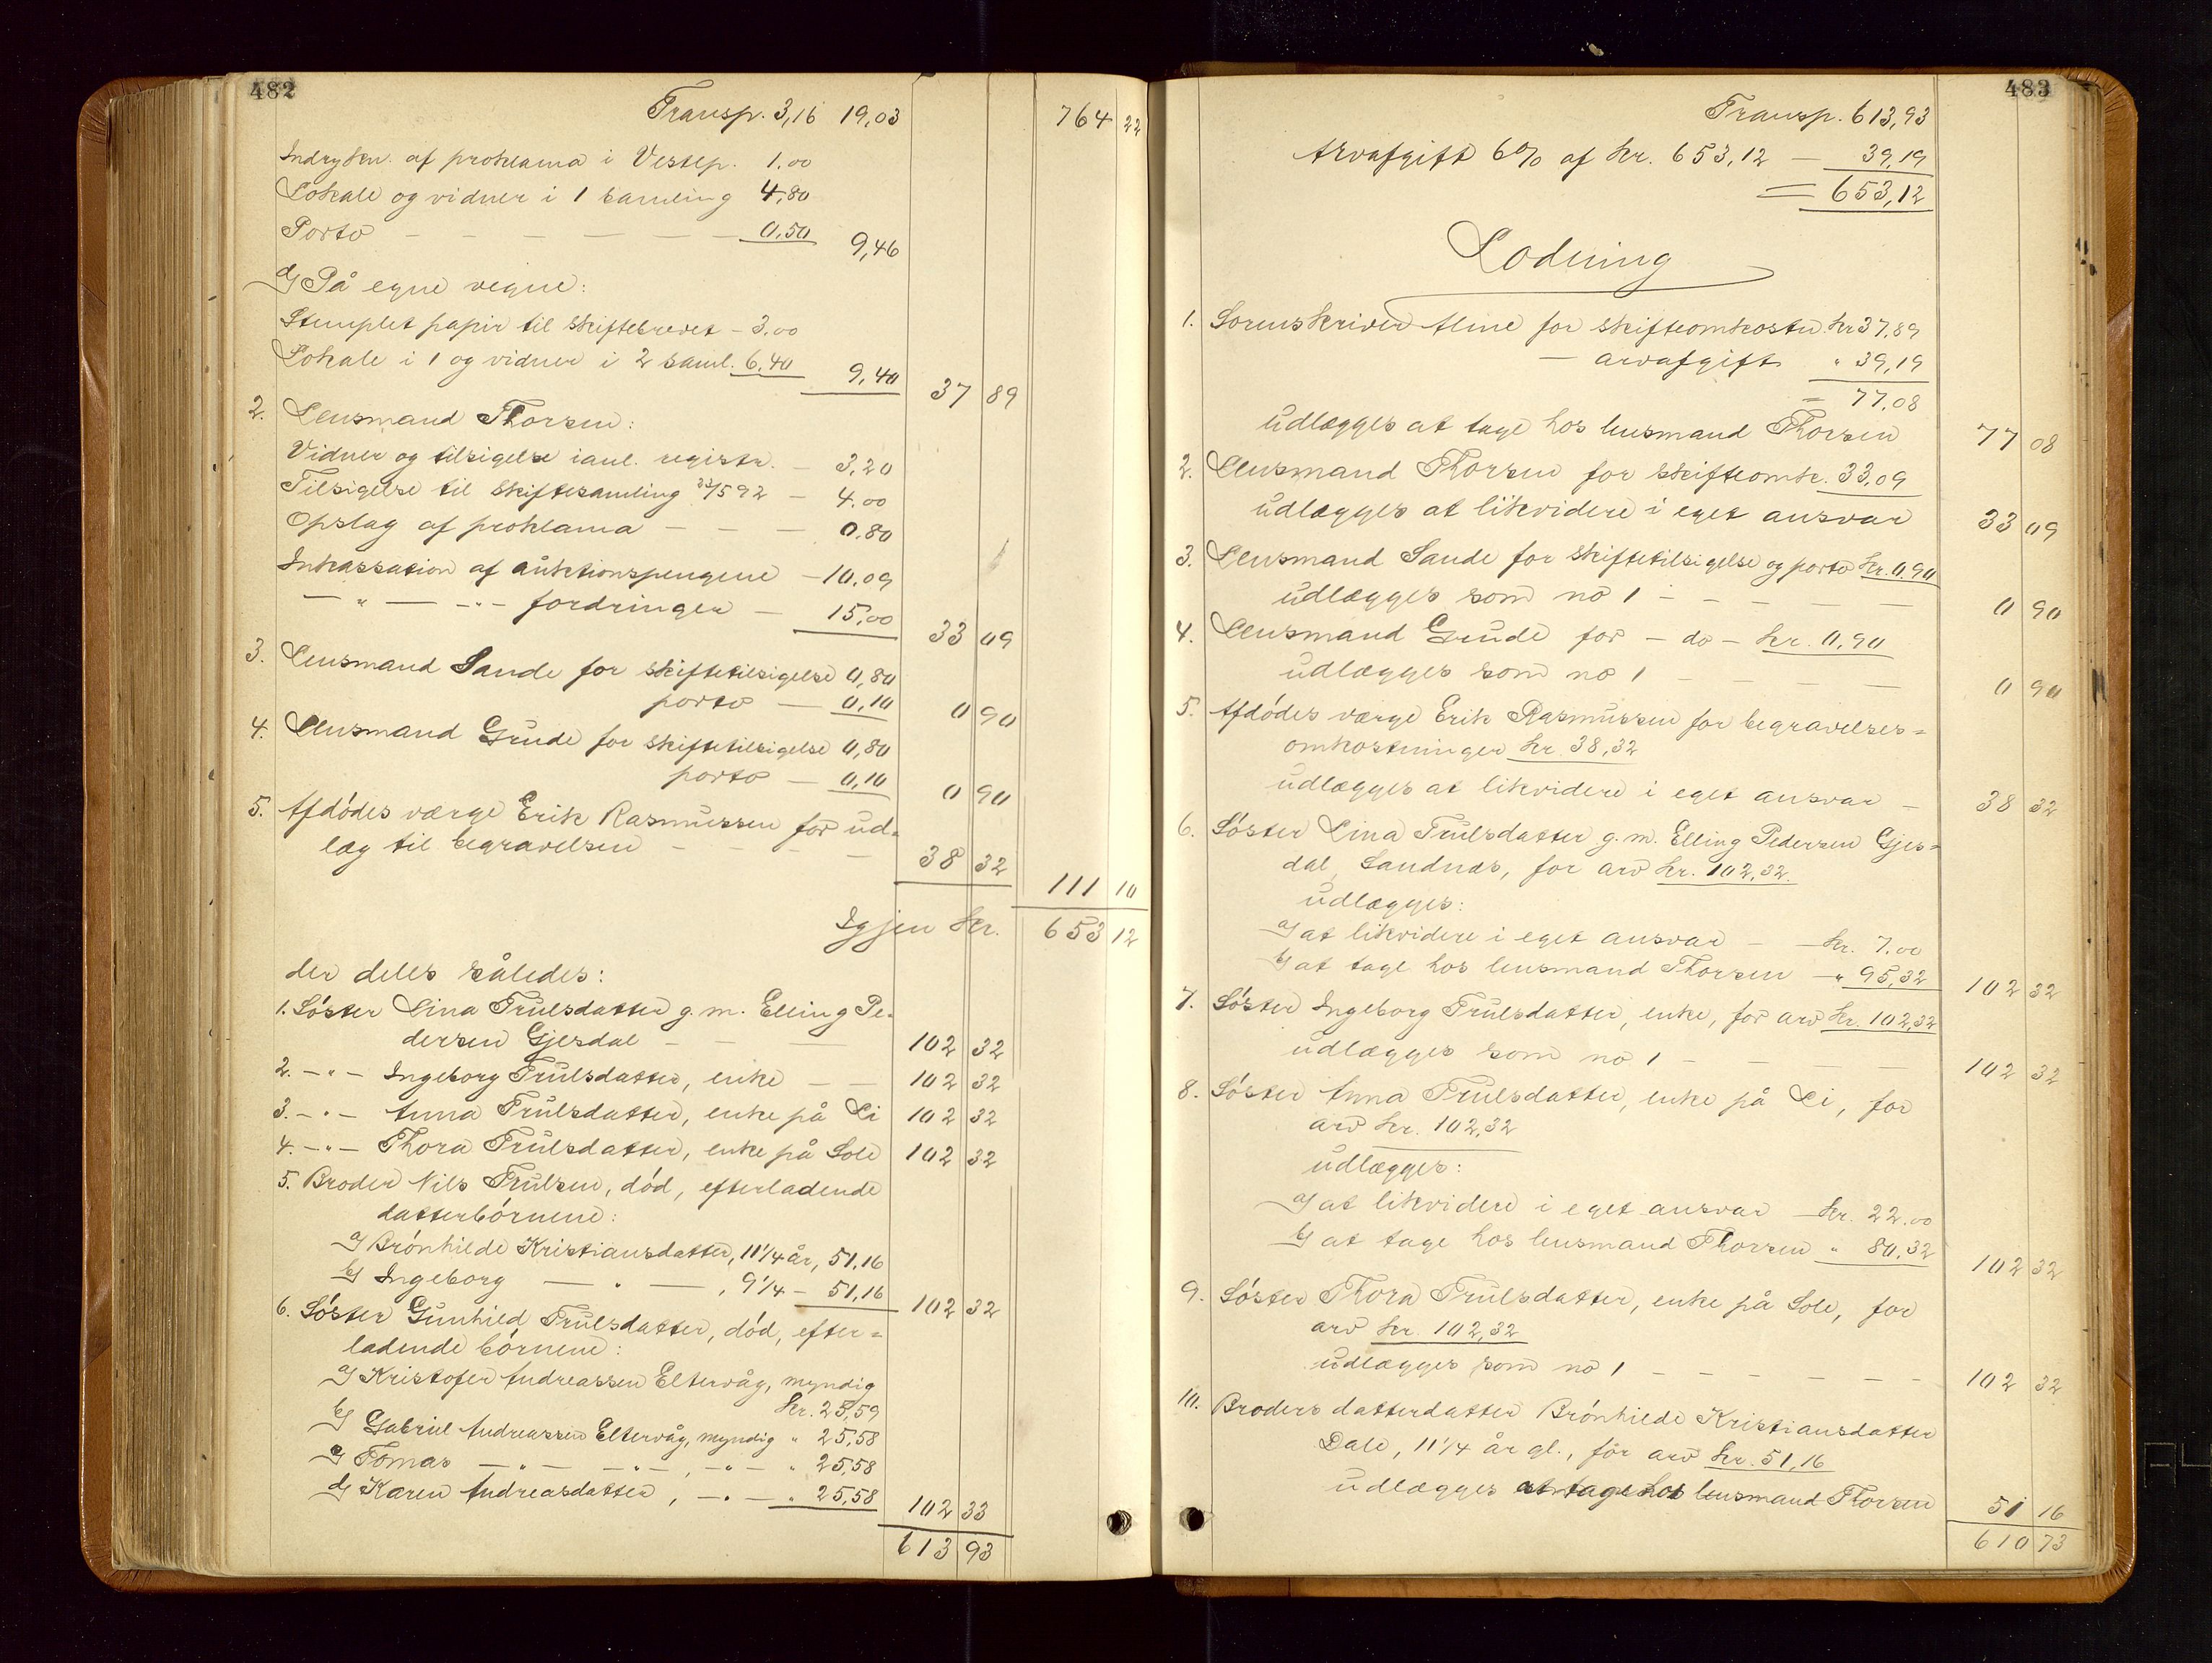 482
Transp. 3,16 19,03 764 22
Indrykn. af proklama i Vestlp. 1.00
Lokale og vidner i 1 samling 4,80
Porto — — — — — — 0.50 9,46
d) På egne vegne:
Stemplet papir til skiftebrevet – 3.00
Lokale i 1 og vidner i 2 saml. 6,40 9,40 37 89
2. Lensmand Thorsen:
Vidner og tilsigelse i anl. registr. — 3,20
Tilsigelse til skiftesamling 23/5 92 — 4.00
Opslag af proklama — — — 0.80
Inkassation af auktionspengene — 10.09
— " — — " — fordringer — 15,00 33 09
3. Lensmand Sande for skiftetilsigelse 0,80
porto — 0,10 0 90
4. Lensmand Grude for skiftetilsigelse 0,80
porto — 0,10 0 90
5. Afdödes værge Erik Rasmussen for ud-
læg til begravelsen — — — — 38 32
111 10
Igjen Kr. 653 12
der deles således:
1. Söster Lina Trulsdatter g. m. Elling Pe-
dersen Gjesdal — — — 102 32
2. – " – Ingeborg Trulsdatter, enke — — 102 32
3. – " – Anna Trulsdatter, enke på Li 102 32
4. – " – Thora Trulsdatter, enke på Sole 102 32
5. Broder Nils Trulsen, död, efterladende
datterbörnene:
a) Brönhilde Kristiansdatter, 11 1/4 år, 51,16
b) Ingeborg — " — , 9 1/4 – 51,16 102 32
6. Söster Gunhild Trulsdatter, död, efter=
ladende börnene:
a) Kristofer Andreassen Eltervåg, myndig
Kr. 25,59
b) Gabriel Andreassen Eltervåg, myndig " 25,58
c) Tomas — " — — " — , — " — " 25,58
d) Karen Andreasdatter, — " — " 25,58 102 33
613 93
483
Transp. 613,93
Arvafgift 6% af Kr. 653,12 — 39,19
= 653,12
Lodning
1. Sorenskriver Aline for skifteomkostn. Kr 37,89
— arvafgift " 39,19
= 77,08
udlægges at tage hos lensmand Thorsen 77 08
2. Lensmand Thorsen for skifteomk. 33,09
udlægges at likvidere i eget ansvar 33 09
3. Lensmand Sande for skiftetilsigelse og porto Kr. 0,90
udlægges som no 1 — — — — — 0 90
4. Lensmand Grude for – do – Kr. 0,90
udlægges som no 1 — — — — 0 90
5. Afdödes værge Erik Rasmussen for begravelses=
omkostninger Kr. 38,32
udlægges at likvidere i eget ansvar — 38 32
6. Söster Lina Trulsdatter g. m. Elling Pedersen Gjes=
dal, Sandnæs, for arv Kr. 102,32.
udlægges:
a) at likvidere i eget ansvar — Kr. 7.00
b) at tage hos lensmand Thorsen — " 95,32 102 32
7. Söster Ingeborg Trulsdatter, enke, for arv Kr. 102,32
udlægges som no 1 — — — — 102 32
8. Söster Anna Trulsdatter, enke på Li, for
arv Kr. 102,32
udlægges:
a) at likvidere i eget ansvar — Kr. 22.00
b) at tage hos lensmand Thorsen " 80,32 102 32
9. Söster Thora Trulsdatter, enke på Sole, for
arv Kr 102,32
udlægges som no 1 — — — — — — 102 32
10. Broders datterdatter Brönhilde Kristiansdatter
Dale, 11 1/4 år gl., for arv Kr. 51,16
udlægges at tage hos lensmand Thorsen 51 16
610 73